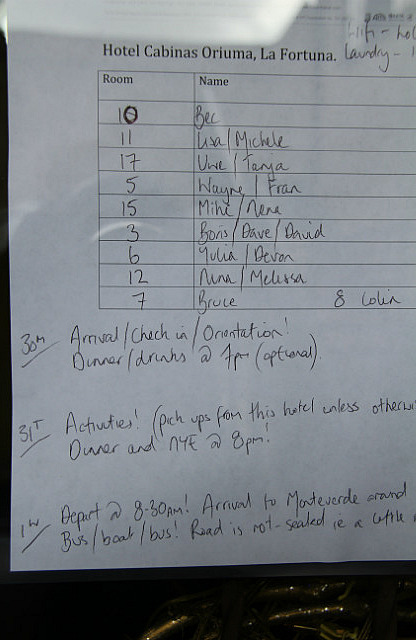 Wifi - hol
Hotel Cabinas Oriuma, La Fortuna. Laundry -
Room Name
10 Bec
11 Lisa/Michele
17 Uwe/Tanya
5 Wayne/Fran
15 Mike/Nena
3 Boris/Dave/David
6 Yulia/Devon
12 Nina/Melissa
7 Bruce 8 Colin
30th Arrival/Check in/Orientation!
Dinner/drinks @ 7pm (optional).
31st Activities! (pick ups from this hotel unless otherwi
Dinner and NYE @ 8pm!
1st Depart @ 8-30am! Arrival to Monteverde around
Bus/boat/bus! Road is not-sealed ie a little